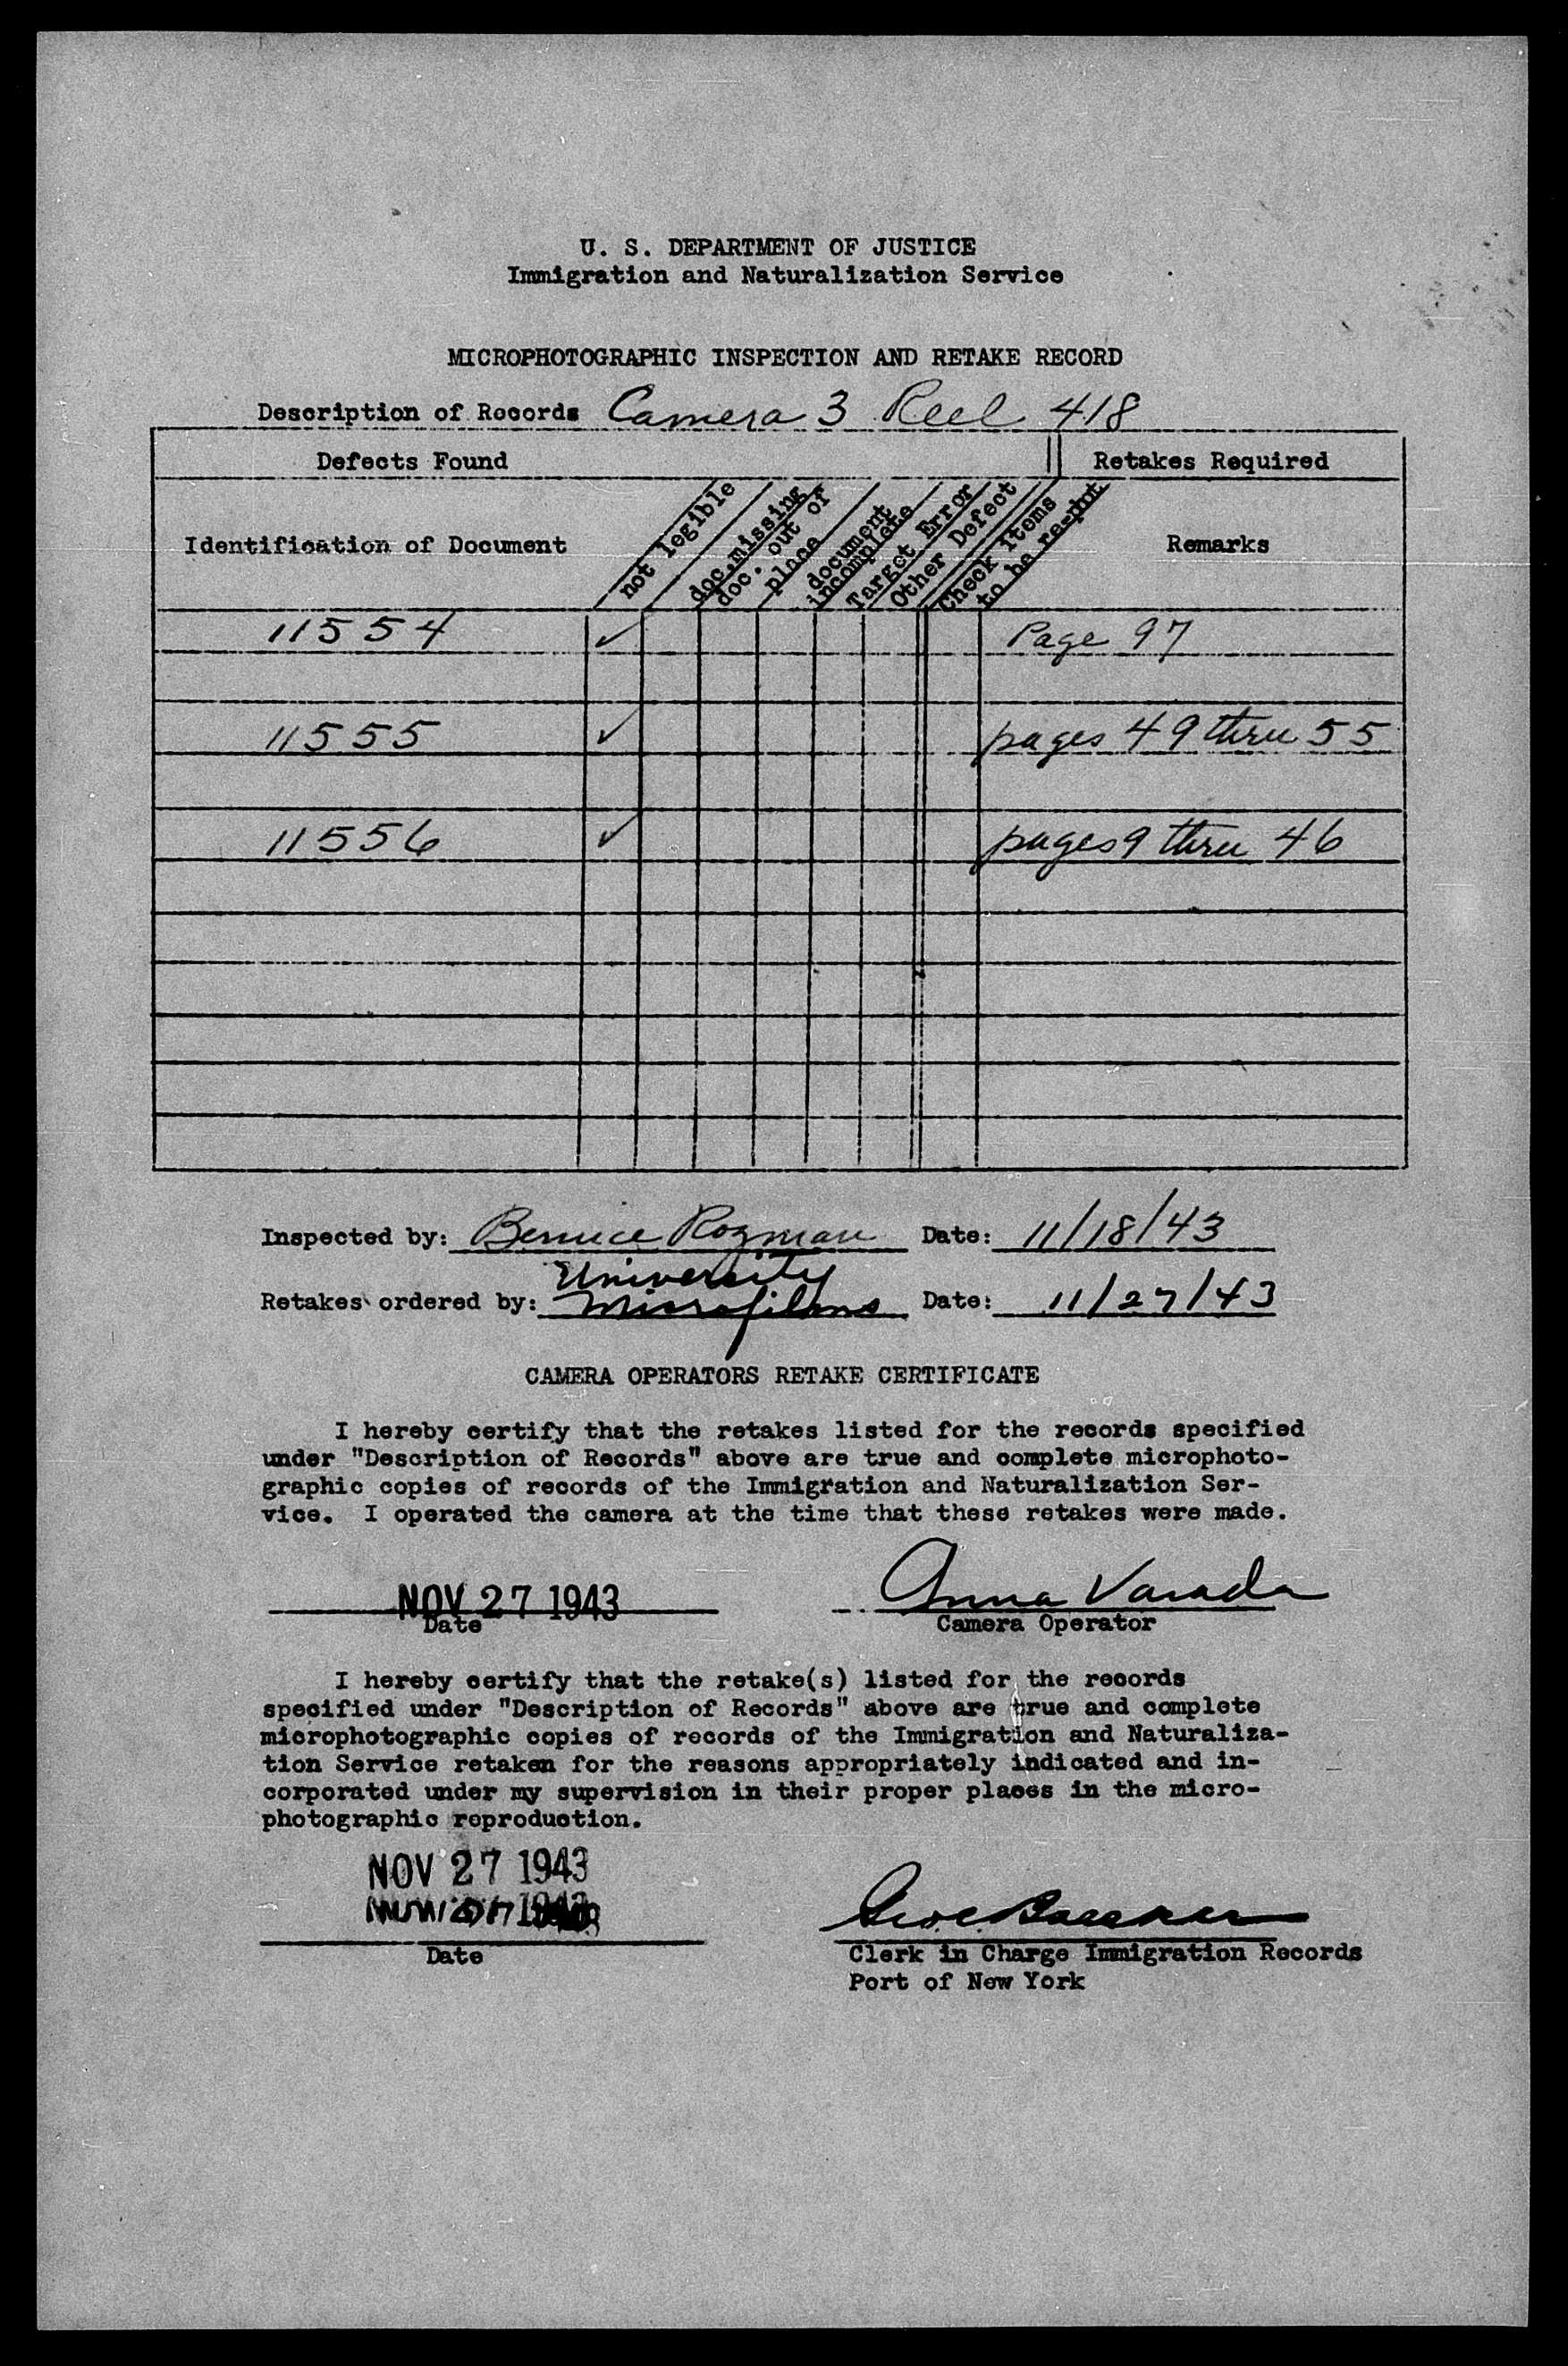 U. S. DEPARTMENT OF JUSTICE
Immigration and Naturalization Service
MICROPHOTOGRAPHIC INSPECTION AND RETAKE RECORD
Description of Records Camera 3 Reel 418
Defects Found Retakes Required
Identification of Document
not legible
doc. missing
doc. out of
place
document
incomplete
Target Error
Other Defect
Check items
to be re-phot
Remarks
11554 ✓ Page 97
11555 ✓ pages 49 thru 55
11556 ✓ pages 9 thru 46
Inspected by: Bernice Rozman Date: 11/18/43
University
Retakes ordered by: Microfilms Date: 11/27/43
CAMERA OPERATORS RETAKE CERTIFICATE
I hereby certify that the retakes listed for the records specified
under "Description of Records" above are true and complete microphoto-
graphic copies of records of the Immigration and Naturalization Ser-
vice. I operated the camera at the time that these retakes were made.
NOV 27 1943 Anna Varada
Date Camera Operator
I hereby certify that the retake(s) listed for the records
specified under "Description of Records" above are true and complete
microphotographic copies of records of the Immigration and Naturaliza-
tion Service retaken for the reasons appropriately indicated and in-
corporated under my supervision in their proper places in the micro-
photographic reproduction.
NOV 27 1943
Date
Clerk in Charge Immigration Records
Port of New York